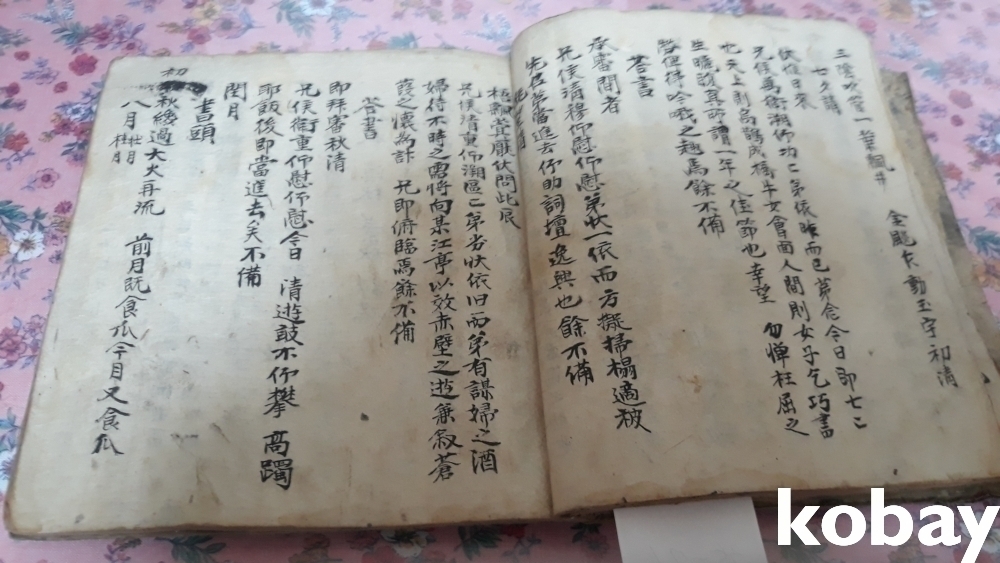 三陰吹葉一葉飄井
金颷乍動玉宇初清
七夕請
伏惟日來
兄候萬衛溯仰功〻第依昨而已第念今日卽七〻
也天上則烏鵲成橋牛女會面人間則女子乞巧書
生曬腹眞所謂一年之佳節也幸望 勿憚枉屈之
勞俾得吟哦之趣焉餘不備
答書
承審間者
兄候清穆仰慰仰慰弟狀一依而方擬掃榻適被
先屈第當進去仰助詞壇逸興也餘不備
梧飄蓂厭伏問此辰
兄候清重仰溯區〻弟劣狀依旧而第有謀婦之酒
婦待不時之需將向某江亭以效赤壁之遊兼叙蒼
葭之懷爲計 兄卽俯臨焉餘不備
答書
卽拜審秋清
兄候衛重仰慰仰慰今日 清遊敢不仰攀 高躅
耶飯後卽當進去矣不備
閏月
書頭
初秋纔過大火再流 前月旣食瓜今月又食瓜
八月 壯月 桂月
kobay